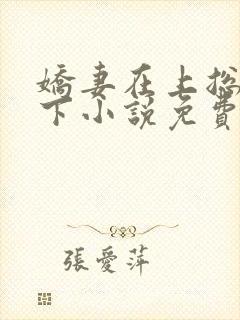 嬌妻在上総
下小説免費
張愛萍